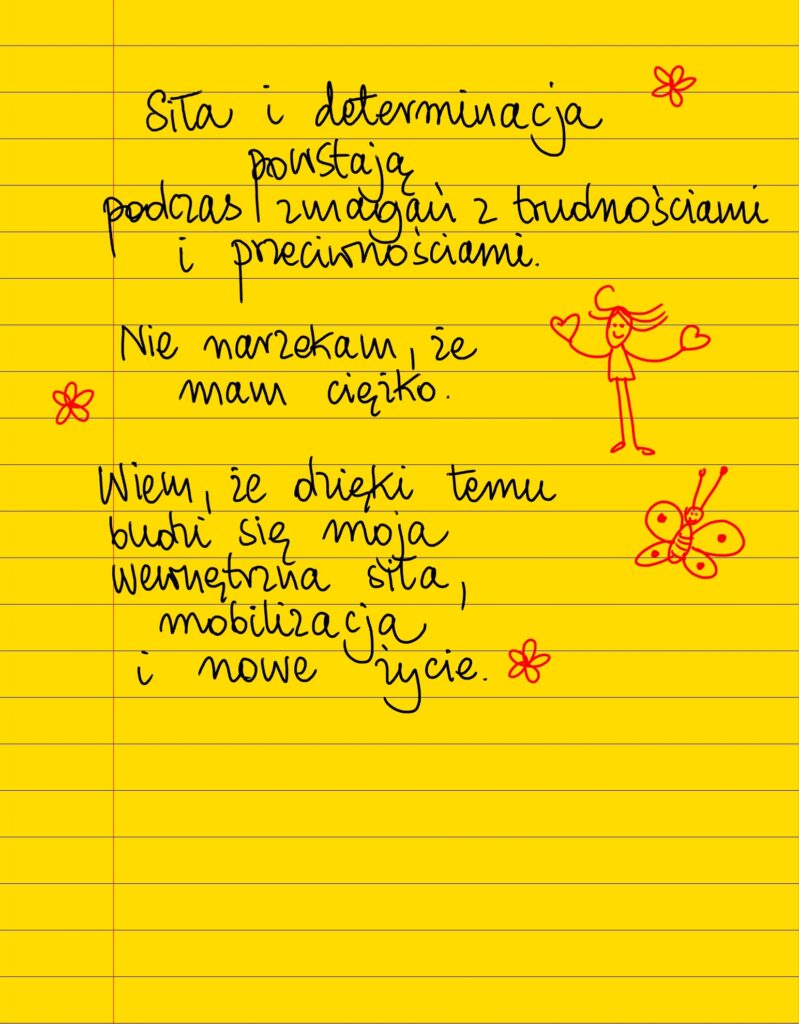 Siła i determinacja
powstają
podczas zmagań z trudnościami
i przeciwnościami.
Nie narzekam, że
mam ciężko.
Wiem, że dzięki temu
budzi się moja
wewnętrzna siła,
mobilizacja
i nowe życie.